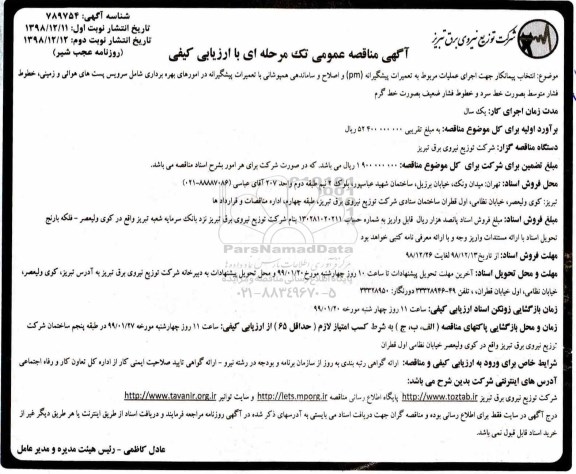 شناسه آگهی: ۷۸۹۷۵۴
تاریخ انتشار نوبت اول: ۱۳۹۸/۱۲/۱۱
تاریخ انتشار نوبت دوم: ۱۳۹۸/۱۲/۱۲
(روزنامه عجب شیر)
شرکت توزیع نیروی برق تبریز
آگهی مناقصه عمومی تک مرحله ای با ارزیابی کیفی
موضوع: انتخاب پیمانکار جهت اجرای عملیات مربوط به تعمیرات پیشگیرانه (pm) و اصلاح و ساماندهی همپوشانی با تعمیرات پیشگیرانه در امورهای بهره برداری شامل سرویس پست های هوائی و زمینی، خطوط
فشار متوسط بصورت خط سرد و خطوط فشار ضعیف بصورت خط گرم
مدت زمان اجرای کار: یک سال
برآورد اولیه برای کل موضوع مناقصه: به مبلغ تقریبی ۵۲ ۴۰۰ ۰۰۰ ۰۰۰ ریال
دستگاه مناقصه گزار: شرکت توزیع نیروی برق تبریز
مبلغ تضمین برای شرکت برای کل موضوع مناقصه: ۱ ۹۰۰ ۰۰۰ ۰۰۰ ریال می باشد. که در صورت شرکت برای هر امور بشرح اسناد مناقصه می باشد.
محل فروش اسناد: تهران: میدان ونک، خیابان برزیل، ساختمان شهید عباسپور، بلوک ۴ نیم طبقه دوم واحد ۲۰۷ آقای عباسی (۸۸۸۸۷۰۸۶-۰۲۱)
تبریز: کوی ولیعصر، خیابان نظامی، اول قطران ساختمان ستادی شرکت توزیع نیروی برق تبریز، طبقه چهارم، اداره مناقصات و قرارداد ها
مبلغ فروش اسناد: مبلغ فروش اسناد پانصد هزار ریال قابل واریز به شماره حساب ۱۳۰۲۸۱۰۲۰۲۱۱ بنام شرکت توزیع نیروی برق تبریز نزد بانک سرمایه شعبه تبریز واقع در کوی ولیعصر - فلکه بارنج
تحویل اسناد با ارائه مستندات واریز وجه و با ارائه معرفی نامه کتبی خواهد بود
مهلت فروش اسناد: از تاریخ ۹۸/۱۲/۱۳ لغایت ۹۸/۱۲/۲۶
مهلت و محل تحویل اسناد: آخرین مهلت تحویل پیشنهادات تا ساعت ۱۰ روز چهارشنبه مورخ ۹۹/۰۱/۲۰ و محل تحویل پیشنهادات به دبیرخانه شرکت توزیع نیروی برق تبریز به آدرس تبریز، کوی ولیعصر،
خیابان نظامی، اول خیابان قطران، تلفن ۴۹-۳۳۳۲۸۹۴۶ دورنگار: ۳۳۳۲۸۹۵۰
زمان بازگشایی زونکن اسناد ارزیابی کیفی: ساعت ۱۱ روز چهار شنبه مورخه ۹۹/۰۱/۲۰
زمان و محل بازگشایی پاکتهای مناقصه (الف، ب، ج) به شرط کسب امتیاز لازم (حداقل ۶۵) از ارزیابی کیفی: ساعت ۱۱ روز چهارشنبه مورخه ۹۹/۰۱/۲۷ در طبقه پنجم ساختمان شرکت
توزیع نیروی برق تبریز واقع در کوی ولیعصر خیابان نظامی اول قطران
شرایط خاص برای ورود به ارزیابی کیفی و مناقصه: ارائه گواهی رتبه بندی به روز از سازمان برنامه و بودجه در رشته نیرو - ارائه گواهی تایید صلاحیت ایمنی کار از اداره کل تعاون کار و رفاه اجتماعی
آدرس های اینترنتی شرکت بدین شرح می باشد:
شرکت توزیع نیروی برق تبریز http://www.toztab.ir پایگاه اطلاع رسانی مناقصه http://iets.mporg.ir و سایت توانیر http://www.tavanir.org.ir
درج آگهی در سایت فقط برای اطلاع رسانی بوده و مناقصه گران جهت دریافت اسناد می بایستی به آدرسهای ذکر شده در آگهی روزنامه مراجعه فرمایند و دریافت اسناد از طریق اینترنت یا هر طریق دیگر غیر از
خرید اسناد قابل قبول نمی باشد.
عادل کاظمی - رئیس هیئت مدیره و مدیر عامل
ParsNamadData
۰۲۱-۸۸۳۴۹۶۷۰-۵